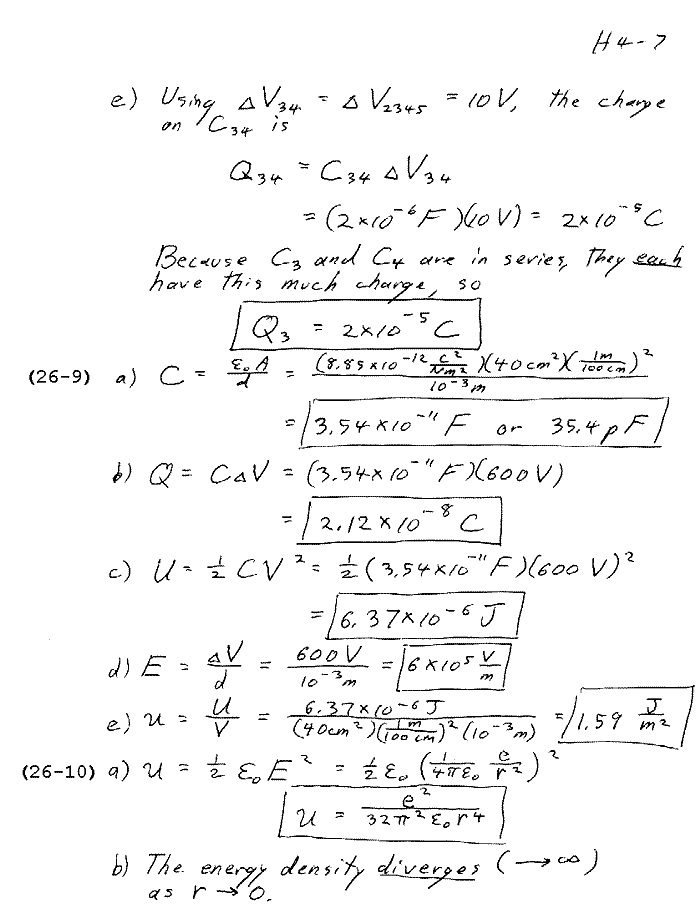 H4-7
e) Using ΔV₃₄ = ΔV₂₃₄₅ = 10V, the charge
on C₃₄ is
Q₃₄ = C₃₄ ΔV₃₄
= (2×10⁻⁶ F)(10V) = 2×10⁻⁵ C
Because C₃ and C₄ are in series, they each
have this much charge, so
Q₃ = 2×10⁻⁵ C
(26-9) a) C = ε₀A/d = (8.85×10⁻¹² C²/Nm²)(40cm²)(1m/100cm)² / 10⁻³m
= 3.54×10⁻¹¹ F or 35.4 pF
b) Q = CΔV = (3.54×10⁻¹¹ F)(600V)
= 2.12×10⁻⁸ C
c) U = ½ CV² = ½ (3.54×10⁻¹¹ F)(600 V)²
= 6.37×10⁻⁶ J
d) E = ΔV/d = 600V/10⁻³m = 6×10⁵ V/m
e) u = U/V = 6.37×10⁻⁶ J / (40cm²)(1m/100cm)²(10⁻³m) = 1.59 J/m²
(26-10) a) u = ½ ε₀E² = ½ ε₀ (1/4πε₀ e/r²)²
u = e²/32π²ε₀r⁴
b) The energy density diverges (→∞)
as r → 0.